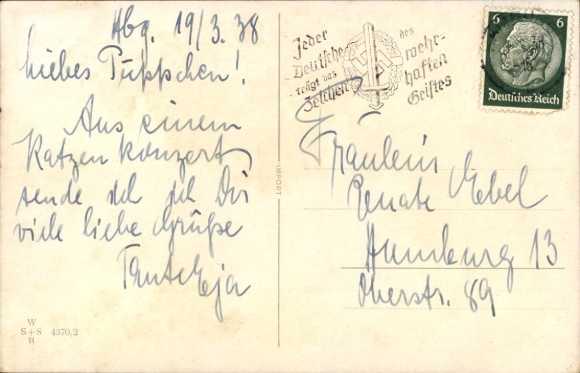 Hbg. 19/3. 38
liebes Püppchen!
Aus einem
Katzenkonzert
sende ich ich Dir
viele liebe Grüße
Tante Eja
W
S+S 4370/2
B
IMPORT
Jeder
Deutsche
trägt das
Zeichen
des
wehr-
haften
Geistes
6 6
Deutsches Reich
Fräulein
Renate Ebel
Hamburg 13
Oberstr. 89